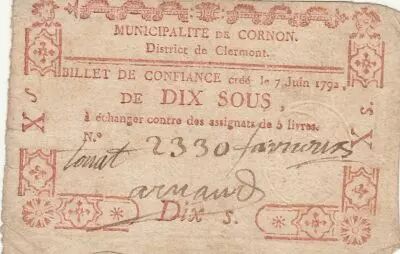 MUNICIPALITÉ DE CORNON.
District de Clermont.
BILLET DE CONFIANCE créé le 7 Juin 1792,
DE DIX SOUS,
à échanger contre des assignats de 5 livres.
N.º 2330
arnaud
Dix s.
X s.
X s.